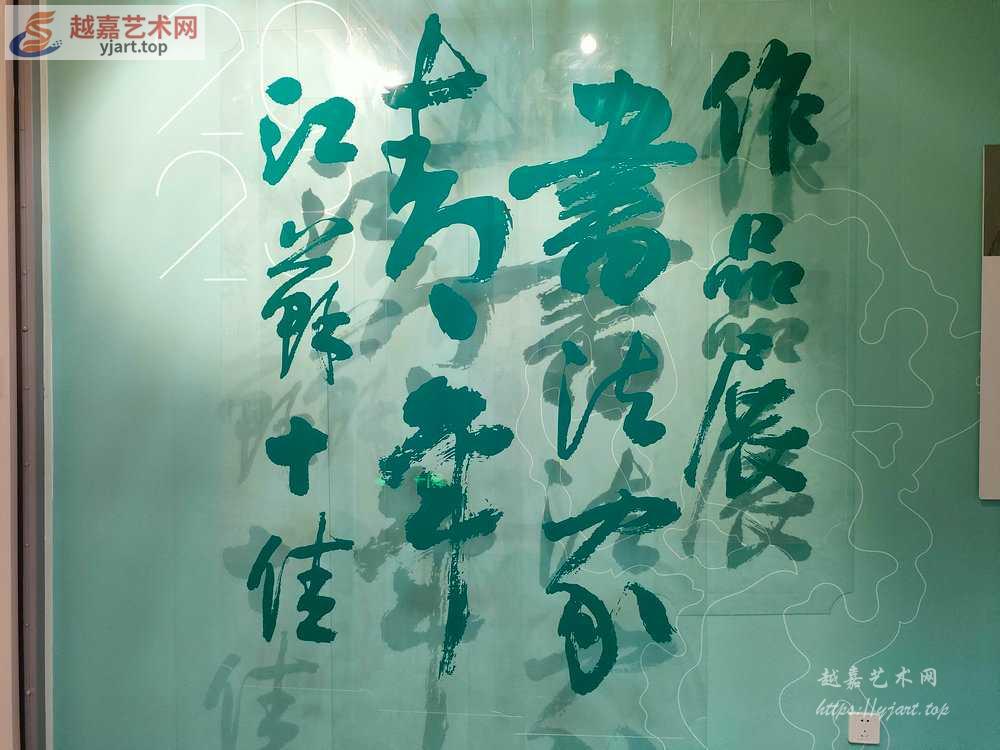 越嘉艺术网
yjart.top
2023
江蘇十佳
青年
書法家
作品展
越嘉艺术网
https://yjart.top